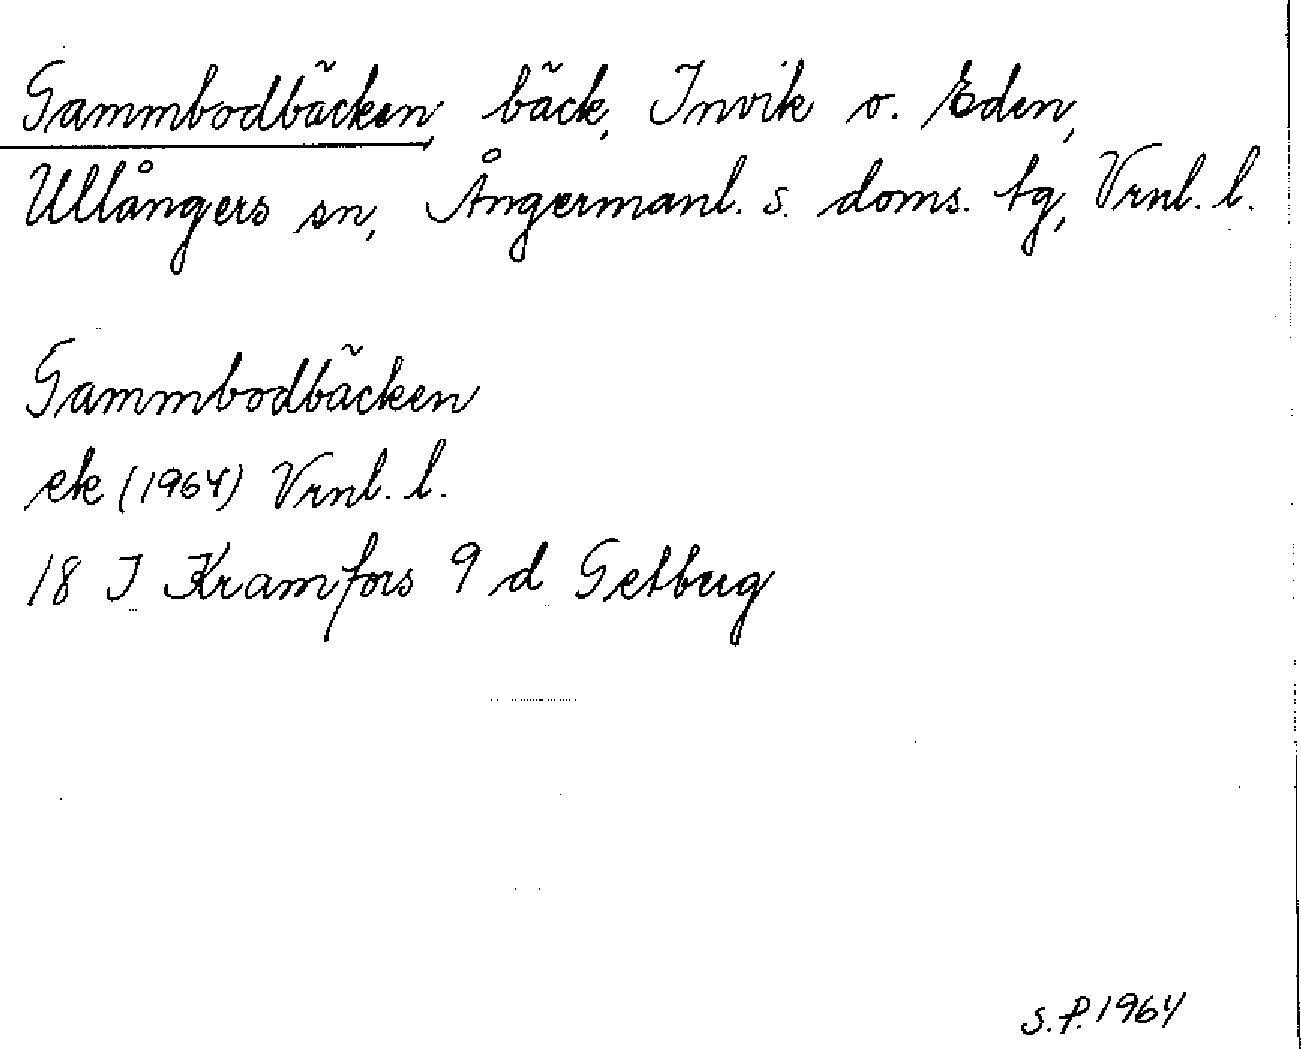 Gammbodbäcken, bäck, Invik o. Eden,
Ullångers sn, Ångermanl. s. doms. tg, Vrnl. l.
Gammbodbäcken
ek (1964) Vrnl. l.
18 I Kramfors 9 d Getberg
S.P. 1964